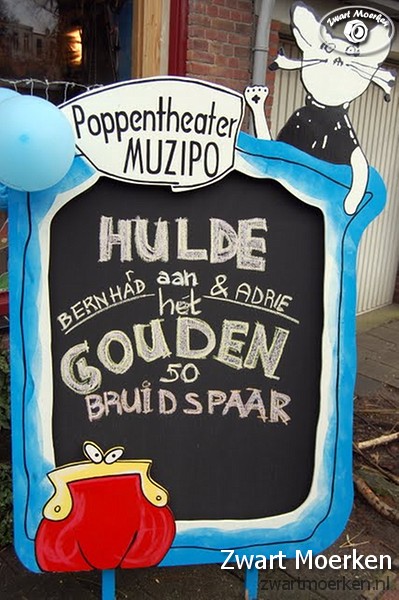 Zwart Moerken
Poppentheater
MUZIPO
HULDE
aan
BERNHÁD & ADRIE
het
GOUDEN
50
BRUIDSPAAR
Zwart Moerken
zwartmoerken.nl